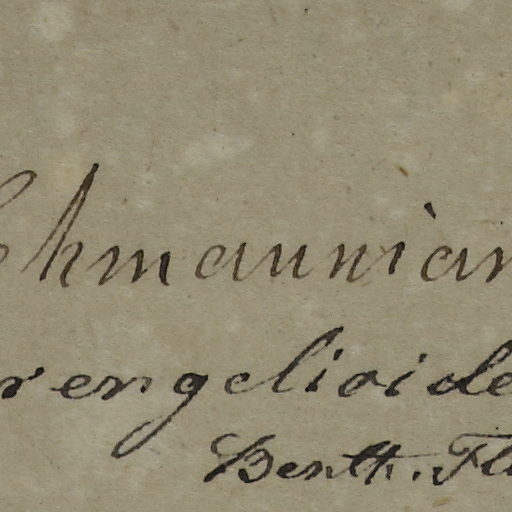 ehmannian
rengelioide
Benth. Fl